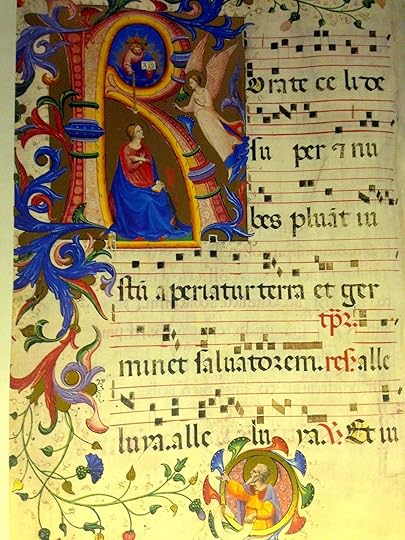 Rorate ce li de
su per ⁊ nu
bes pluāt iu
stū a periatur terra et ger
tp̄r.
minet saluatorem. res. alle
luya. alle lu ya. ℣ Et iu